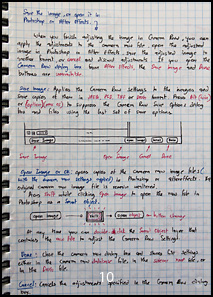 Save the image or open it in
Photoshop or After Effects.
When you finish adjusting the image in Camera Raw, you can
apply the adjustments to the camera raw file, open the adjusted
image in Photoshop or After Effects, save the adjusted image to
another format, or cancel and discard adjustments. If you open the
Camera Raw dialog box from After Effects, the Save Image and Done
buttons are unavailable.
Save Image: Applies the Camera Raw settings to the images and
saves copies of them in JPEG, PSD, TIFF or DNG format. Press Alt (Win)
or (option)(mac OS) to suppress the Camera Raw Save Options dialog
box and files using the last set of save options.
Save Image
Open Image
Cancel
Done
Open Image or OK: opens copies of the camera raw image files
(with the camera raw settings applied) in Photoshop or After Effects. The
original camera raw image file is remains unaltered.
Press Shift while clicking Open Image to open the raw file in
Photoshop as a smart object.
open image
Shift
open object
button change
At any time you can double-click the Smart Object layer that
contains the raw file to adjust the Camera Raw Settings.
Done: Close the camera raw dialog box and stores file settings
either in the camera raw database file, in the sidecar XMP file, or
in the DNG file.
Cancel: Cancels the adjustments specified in the Camera Raw dialog
box.
10